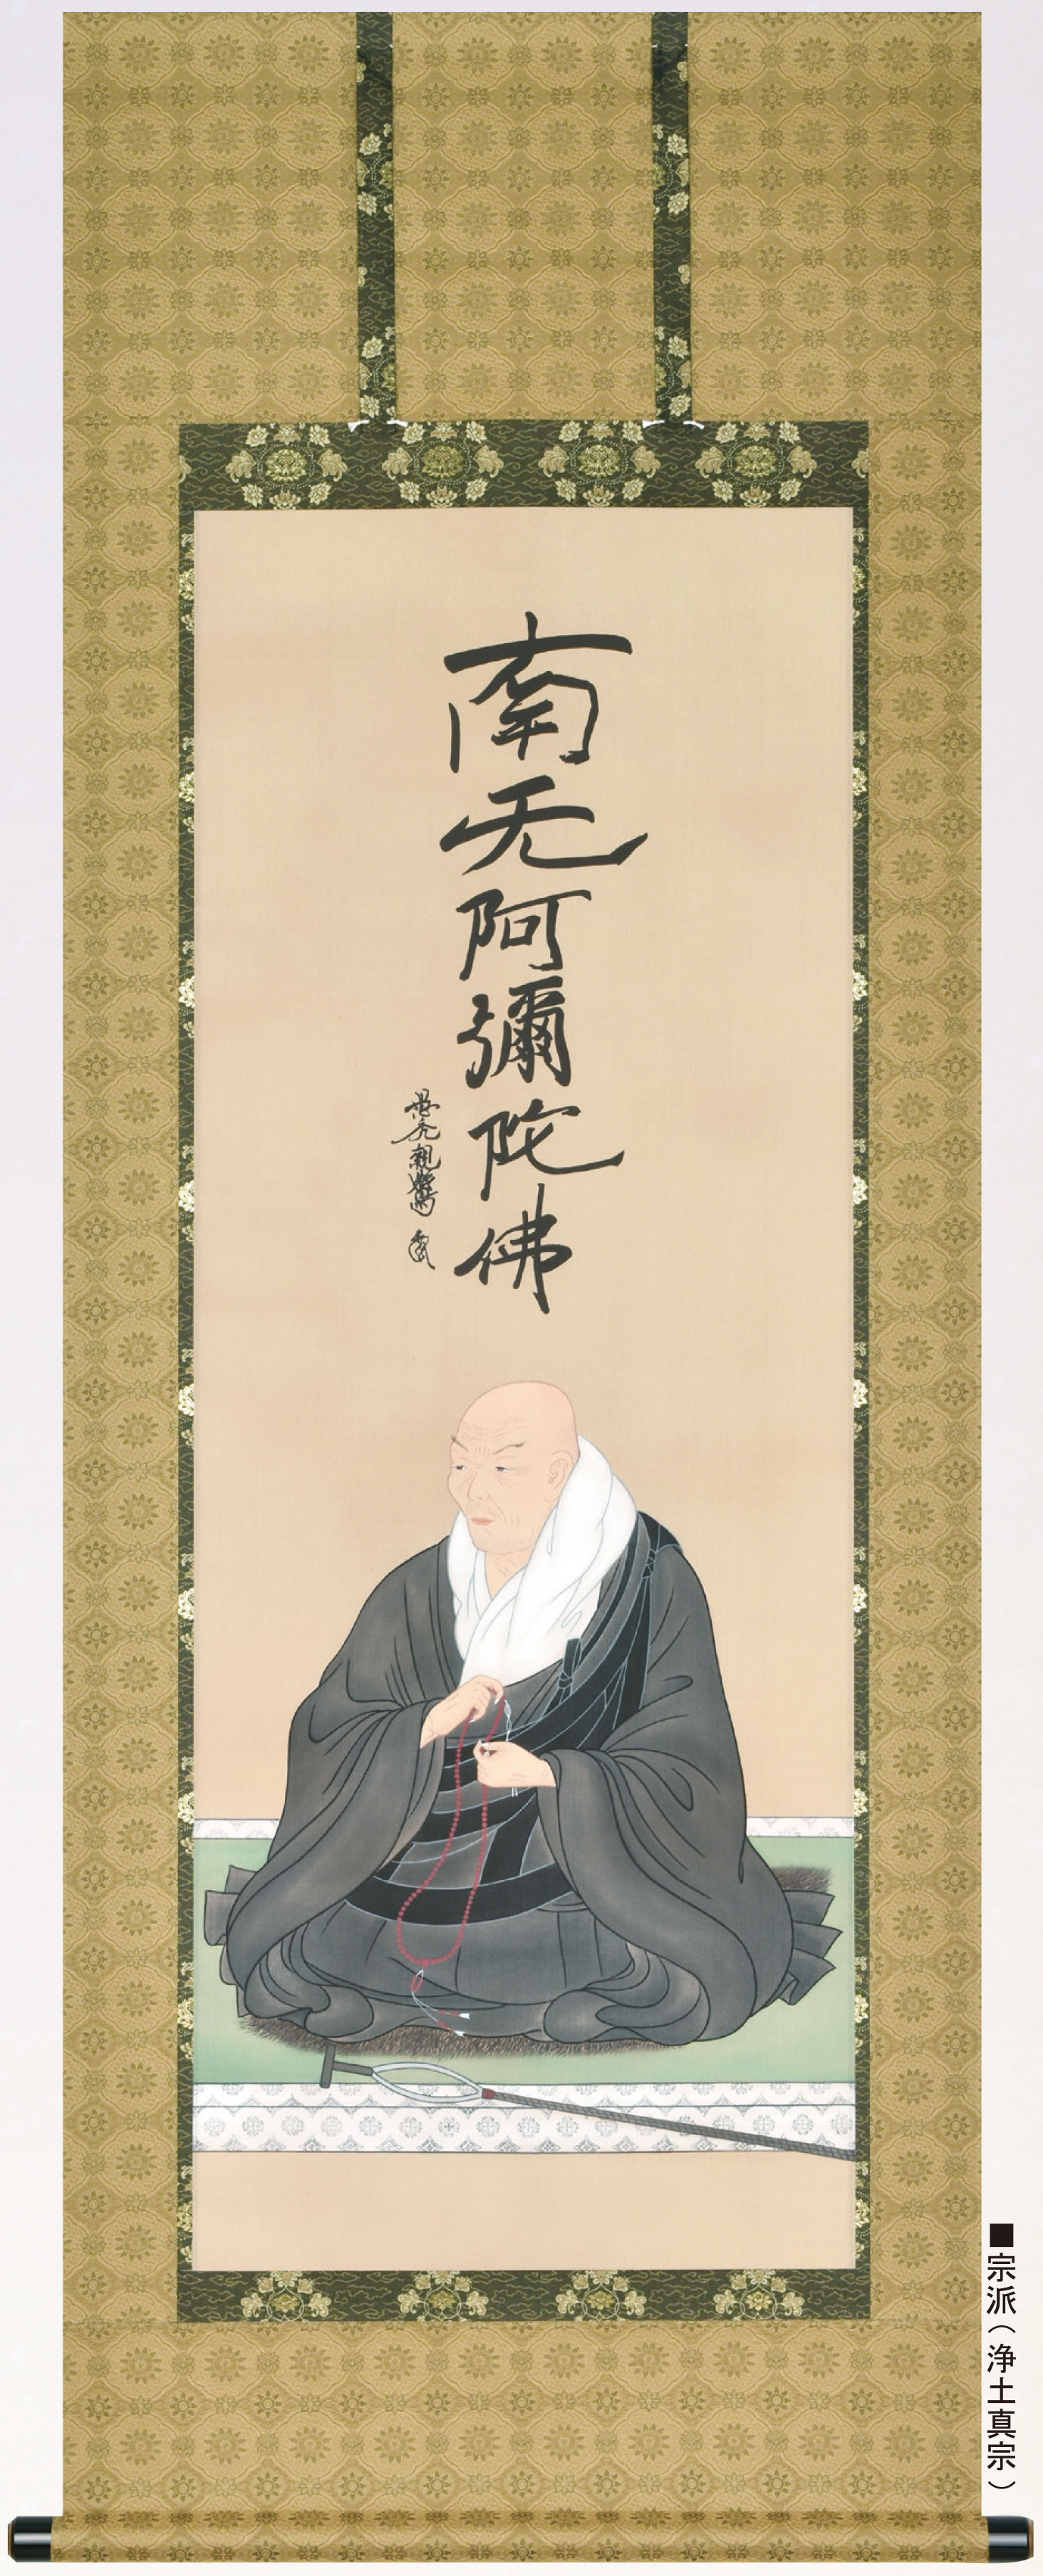 南无阿彌陀佛
愚禿親鸞
■宗派(浄土真宗)